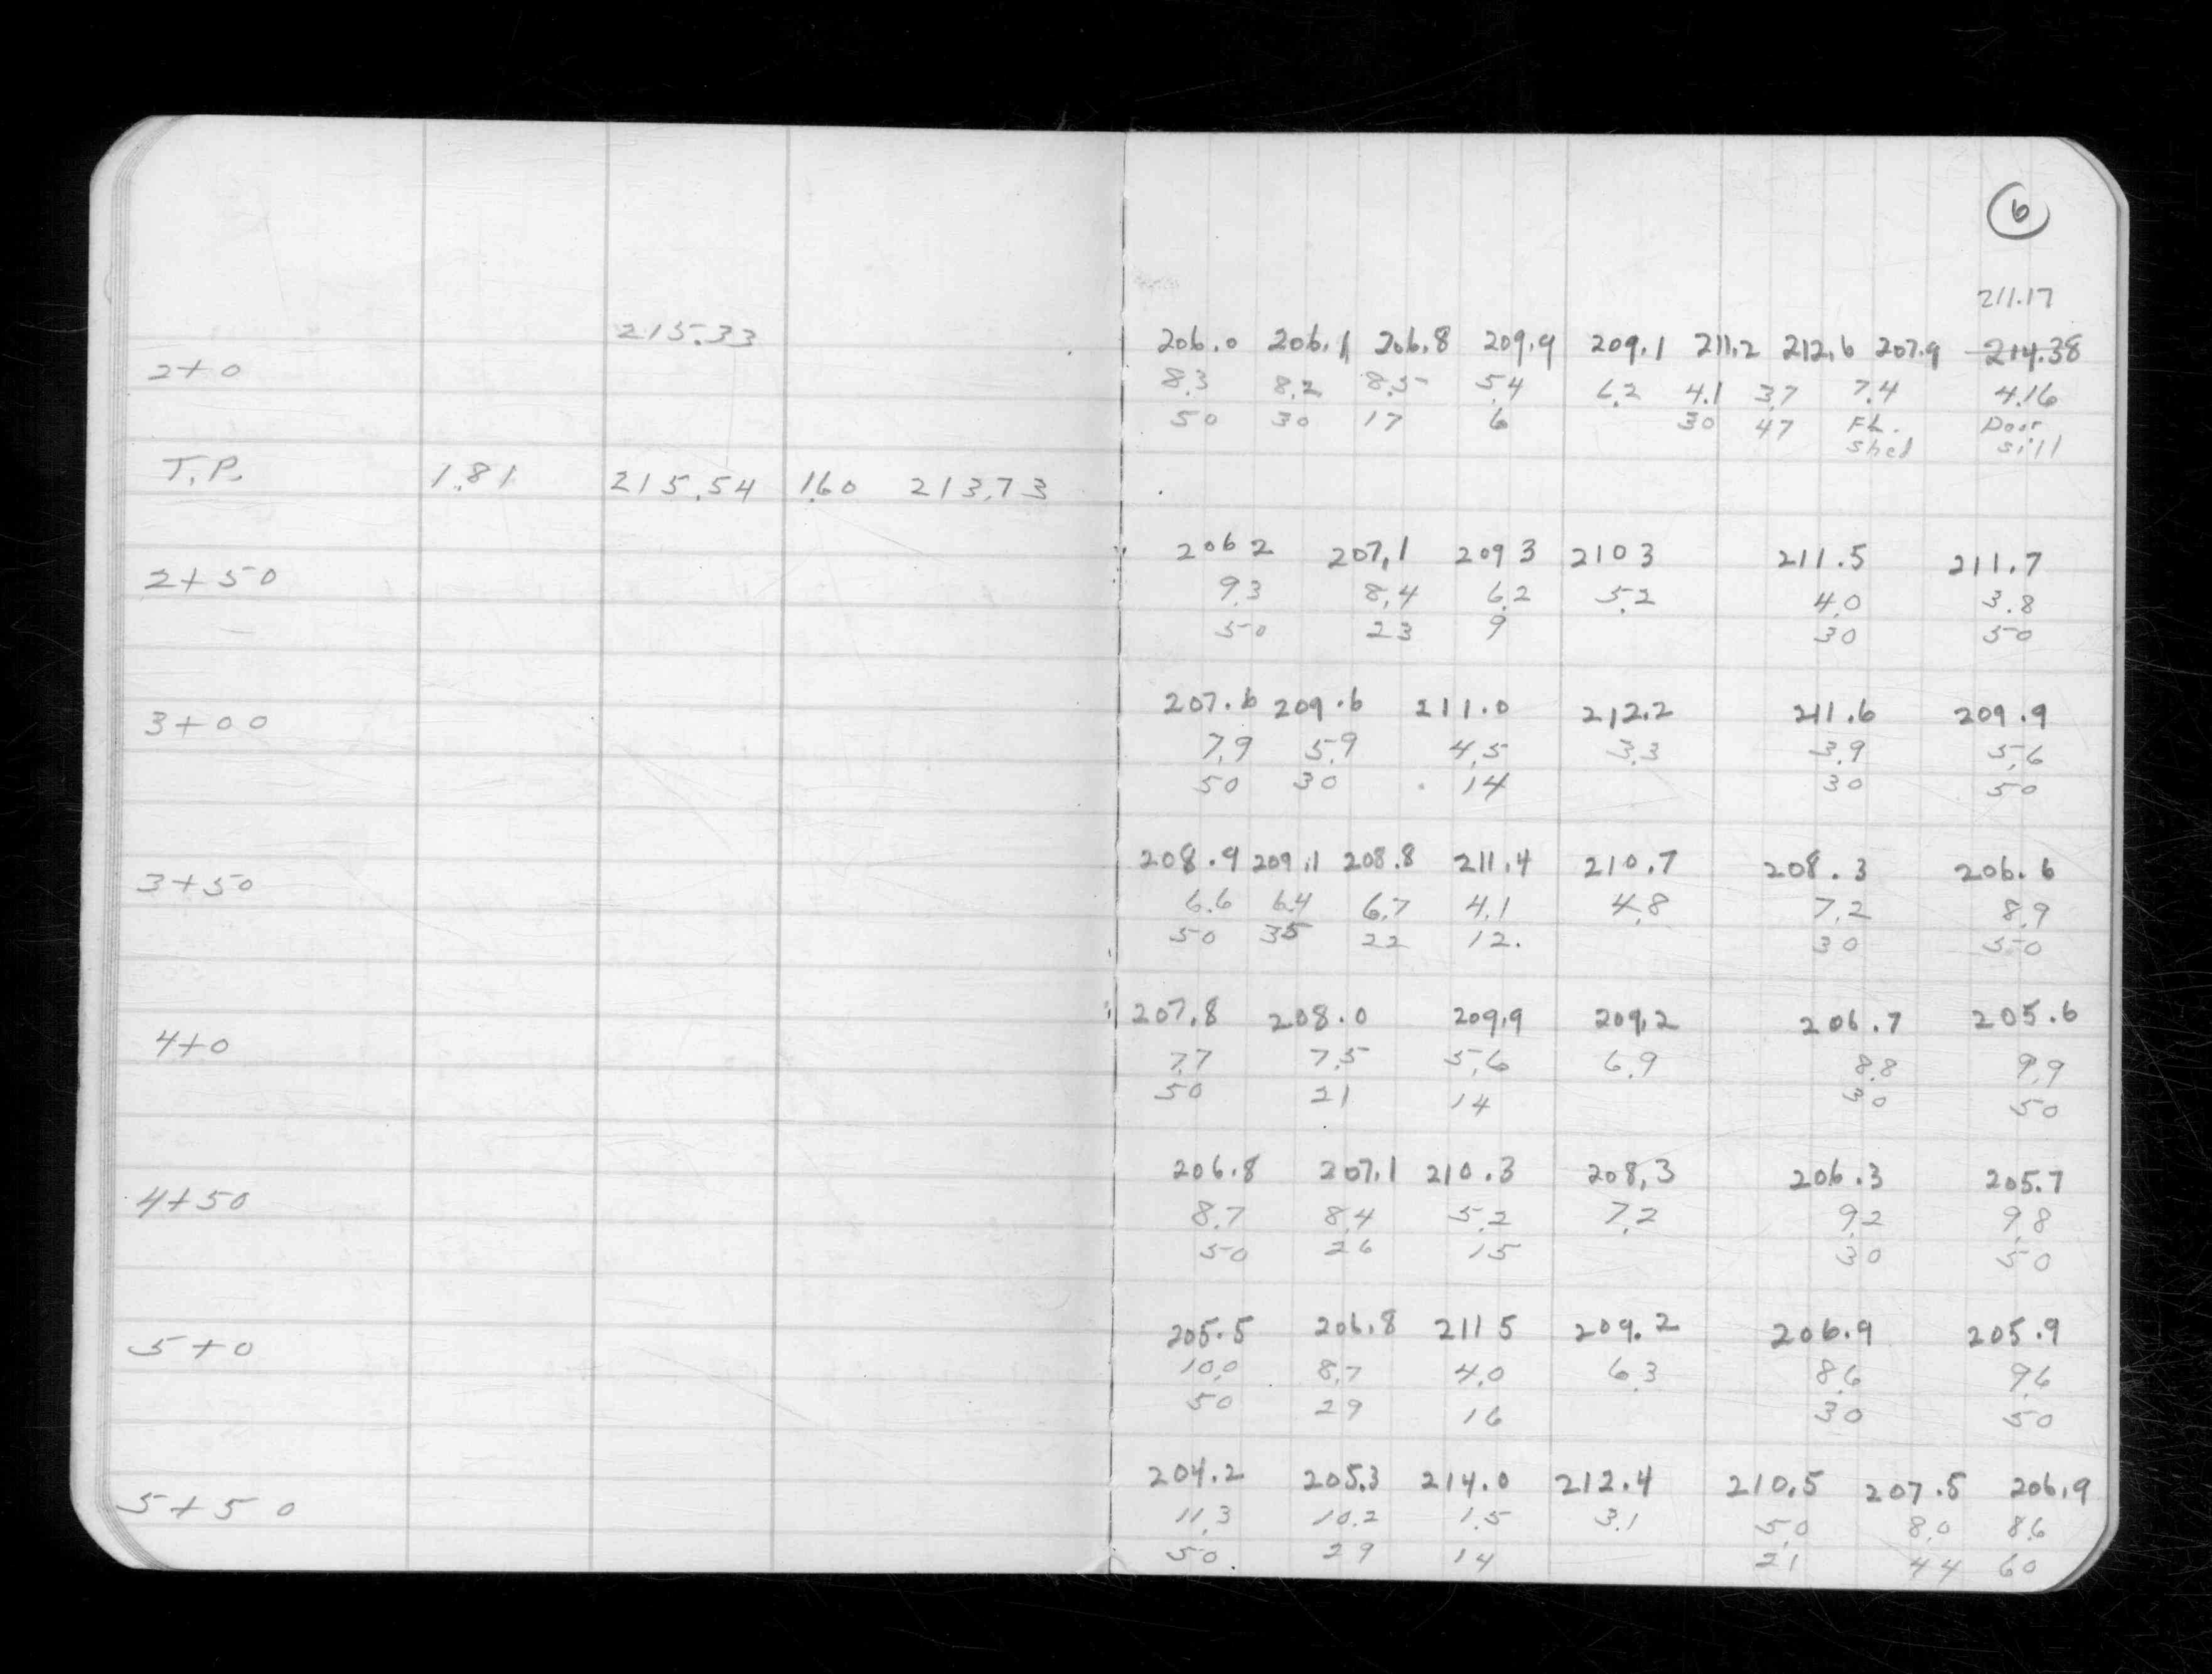 6
211.17
215.33
206.0 206.1 206.8 209.9 209.1 211.2 212.6 207.9 214.38
2+0
8.3 8.2 8.5 5.4 6.2 4.1 3.7 7.4 4.16
50 30 17 6 30 47 FL. Door
Shed Sill
T.P. 1.81 215.54 1.60 213.73
206 2 207.1 209 3 210 3 211.5 211.7
2+50
9.3 8.4 6.2 5.2 4.0 3.8
50 23 9 30 50
207.6 209.6 211.0 212.2 211.6 209.9
3+00
7.9 5.9 4.5 3.3 3.9 5.6
50 30 14 30 50
208.9 209.1 208.8 211.4 210.7 208.3 206.6
3+50
6.6 6.4 6.7 4.1 4.8 7.2 8.9
50 35 22 12. 30 50
207.8 208.0 209.9 209.2 206.7 205.6
4+0
7.7 7.5 5.6 6.9 8.8 9.9
50 21 14 30 50
206.8 207.1 210.3 208.3 206.3 205.7
4+50
8.7 8.4 5.2 7.2 9.2 9.8
50 26 15 30 50
205.5 206.8 211 5 209.2 206.9 205.9
5+0
10.0 8.7 4.0 6.3 8.6 9.6
50 29 16 30 50
204.2 205.3 214.0 212.4 210.5 207.5 206.9
5+50
11.3 10.2 1.5 3.1 5.0 8.0 8.6
50 29 14 21 44 60